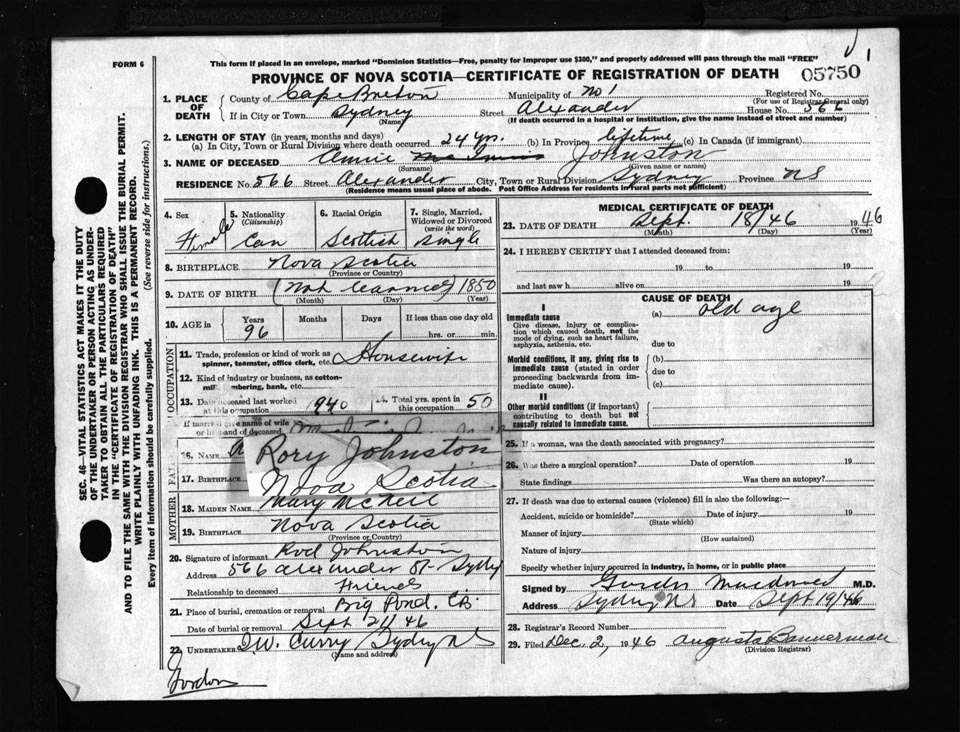 FORM 6
This form if placed in an envelope, marked "Dominion Statistics—Free, penalty for improper use $300," and properly addressed will pass through the mail "FREE"
1
PROVINCE OF NOVA SCOTIA—CERTIFICATE OF REGISTRATION OF DEATH
05750
1. PLACE OF DEATH
County of Cape Breton Municipality of No 1 Registered No.
(For use of Registrar General only)
If in City or Town Sydney Street Alexander House No. 566
(Name) (If death occurred in a hospital or institution, give the name instead of street and number)
2. LENGTH OF STAY (in years, months and days)
(a) In City, Town or Rural Division where death occurred 24 yrs. (b) In Province lifetime (c) In Canada (if immigrant)
3. NAME OF DECEASED Annie Johnston
(Surname) (Given name or names)
RESIDENCE No. 566 Street Alexander City, Town or Rural Division Sydney Province NS
(Residence means usual place of abode. Post Office Address for residents in rural parts not sufficient)
4. Sex Female
5. Nationality (Citizenship) Can
6. Racial Origin Scottish
7. Single, Married, Widowed or Divorced (write the word) Single
8. BIRTHPLACE Nova Scotia
(Province or Country)
9. DATE OF BIRTH (Not learned) 1850
(Month) (Day) (Year)
10. AGE in Years 96 Months Days If less than one day old
hrs. or min.
OCCUPATION
11. Trade, profession or kind of work as spinner, teamster, office clerk, etc. Housewife
12. Kind of industry or business, as cotton-
mill, lumbering, bank, etc.
13. Date deceased last worked at this occupation 1940 Total yrs. spent in this occupation 50
If married give name of wife
or husband of deceased
FAT
16. Name Rory Johnston
17. Birthplace Nova Scotia
MOTHER
18. MAIDEN NAME Mary McNeil
19. BIRTHPLACE Nova Scotia
(Province or Country)
20. Signature of informant Rod Johnston
Address 566 Alexander St- Sydney
Relationship to deceased Friend
21. Place of burial, cremation or removal Big Pond, C.B.
Date of burial or removal Sept 21/46
22. UNDERTAKER Curry Sydney NS
(Name and address)
Gordon
MEDICAL CERTIFICATE OF DEATH
23. DATE OF DEATH Sept. 18/46 1946
(Month) (Day) (Year)
24. I HEREBY CERTIFY that I attended deceased from:
19 to 19
and last saw h alive on 19
CAUSE OF DEATH
I
Immediate cause (a) old age
Give disease, injury or complication which caused death, not the mode of dying, such as heart failure, asphyxia, asthenia, etc.
due to
Morbid conditions, if any, giving rise to immediate cause (stated in order proceeding backwards from immediate cause).
(b)
due to
(c)
II
Other morbid conditions (if important) contributing to death but not causally related to immediate cause.
25. If a woman, was the death associated with pregnancy?
26. Was there a surgical operation? Date of operation 19
State findings Was there an autopsy?
27. If death was due to external causes (violence) fill in also the following:—
Accident, suicide or homicide? Date of injury 19
(State which)
Manner of injury
(How sustained)
Nature of injury
Specify whether injury occurred in industry, in home, or in public place
Signed by M.D.
Address Sydney NS Date Sept 19/46
28. Registrar's Record Number
29. Filed Dec. 2, 1946 Augusta Bannerman
(Division Registrar)
SEC. 46—VITAL STATISTICS ACT MAKES IT THE DUTY
OF THE UNDERTAKER OR PERSON ACTING AS UNDER-
TAKER TO OBTAIN ALL THE PARTICULARS REQUIRED
IN THE "CERTIFICATE OF REGISTRATION OF DEATH"
AND TO FILE THE SAME WITH THE DIVISION REGISTRAR WHO SHALL ISSUE THE BURIAL PERMIT.
WRITE PLAINLY WITH UNFADING INK. THIS IS A PERMANENT RECORD.
Every item of information should be carefully supplied. (See reverse side for instructions.)